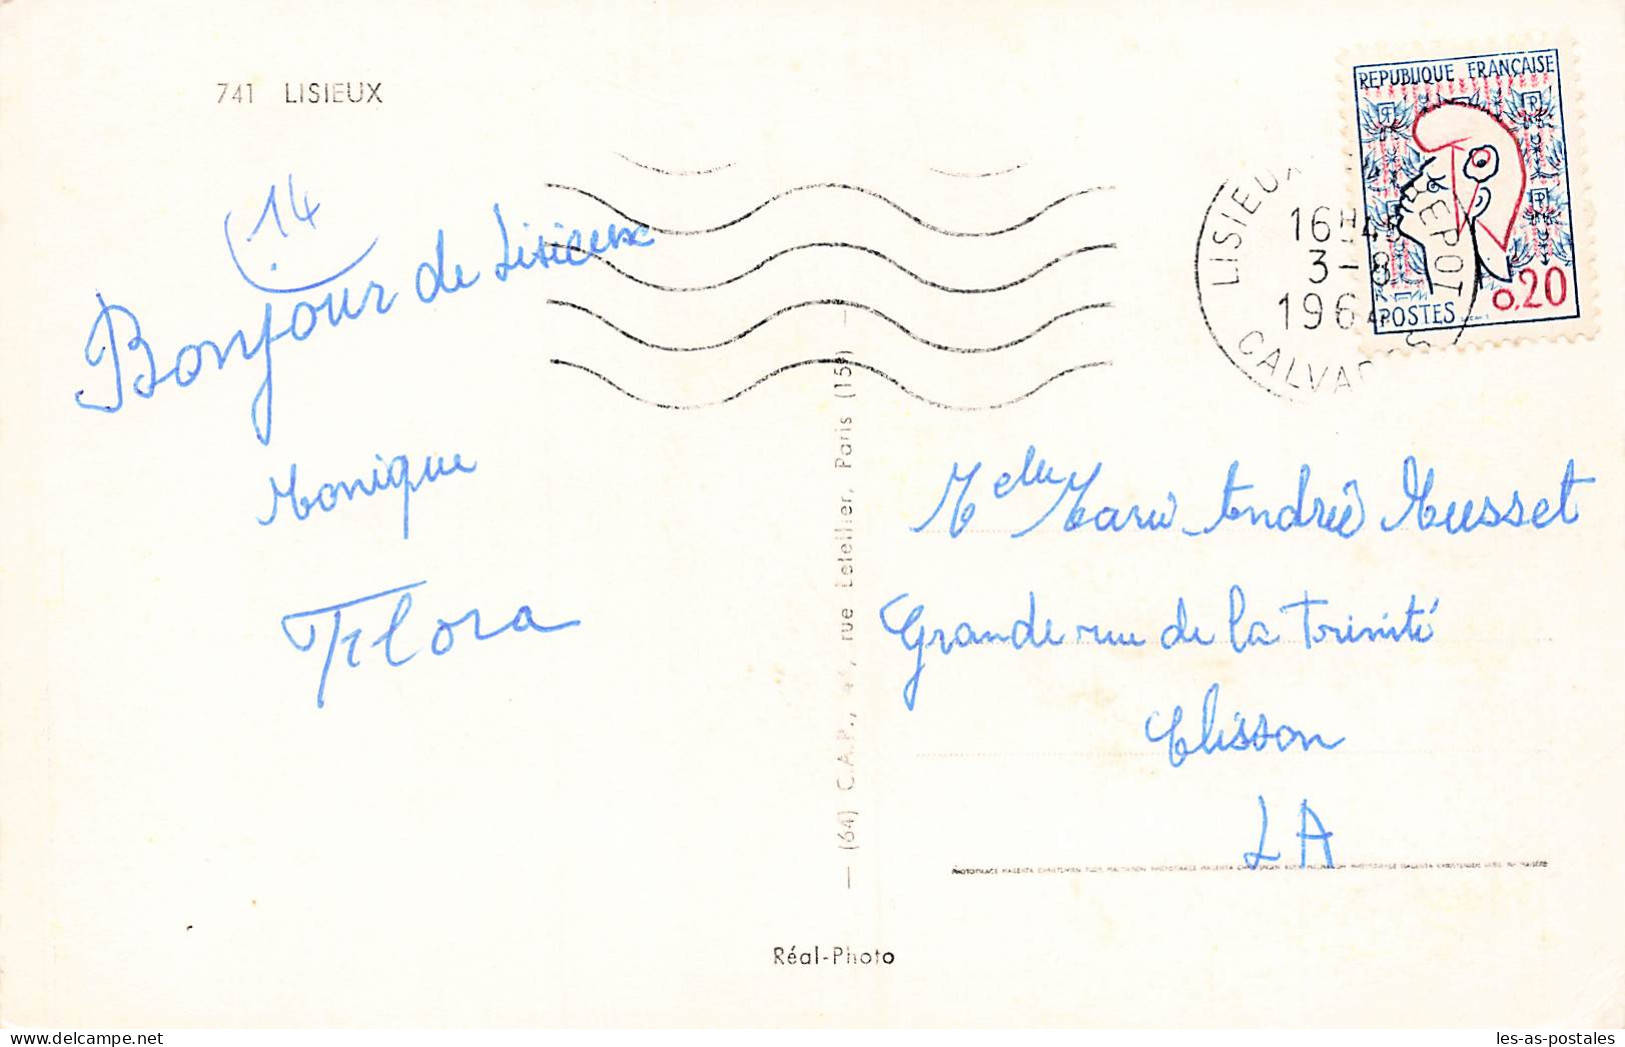 741 LISIEUX
14
Bonjour de Lisieux
Monique
Flora
REPUBLIQUE FRANÇAISE
0,20
POSTES
LISIEUX DEPOT
16H45
3-8
1964
CALVADOS
Melle Marie Andrée Musset
Grande rue de la Trinité
Clisson
L A
— (64) C.A.P., rue Letellier, Paris (15e) —
Réal-Photo
les-as-postales